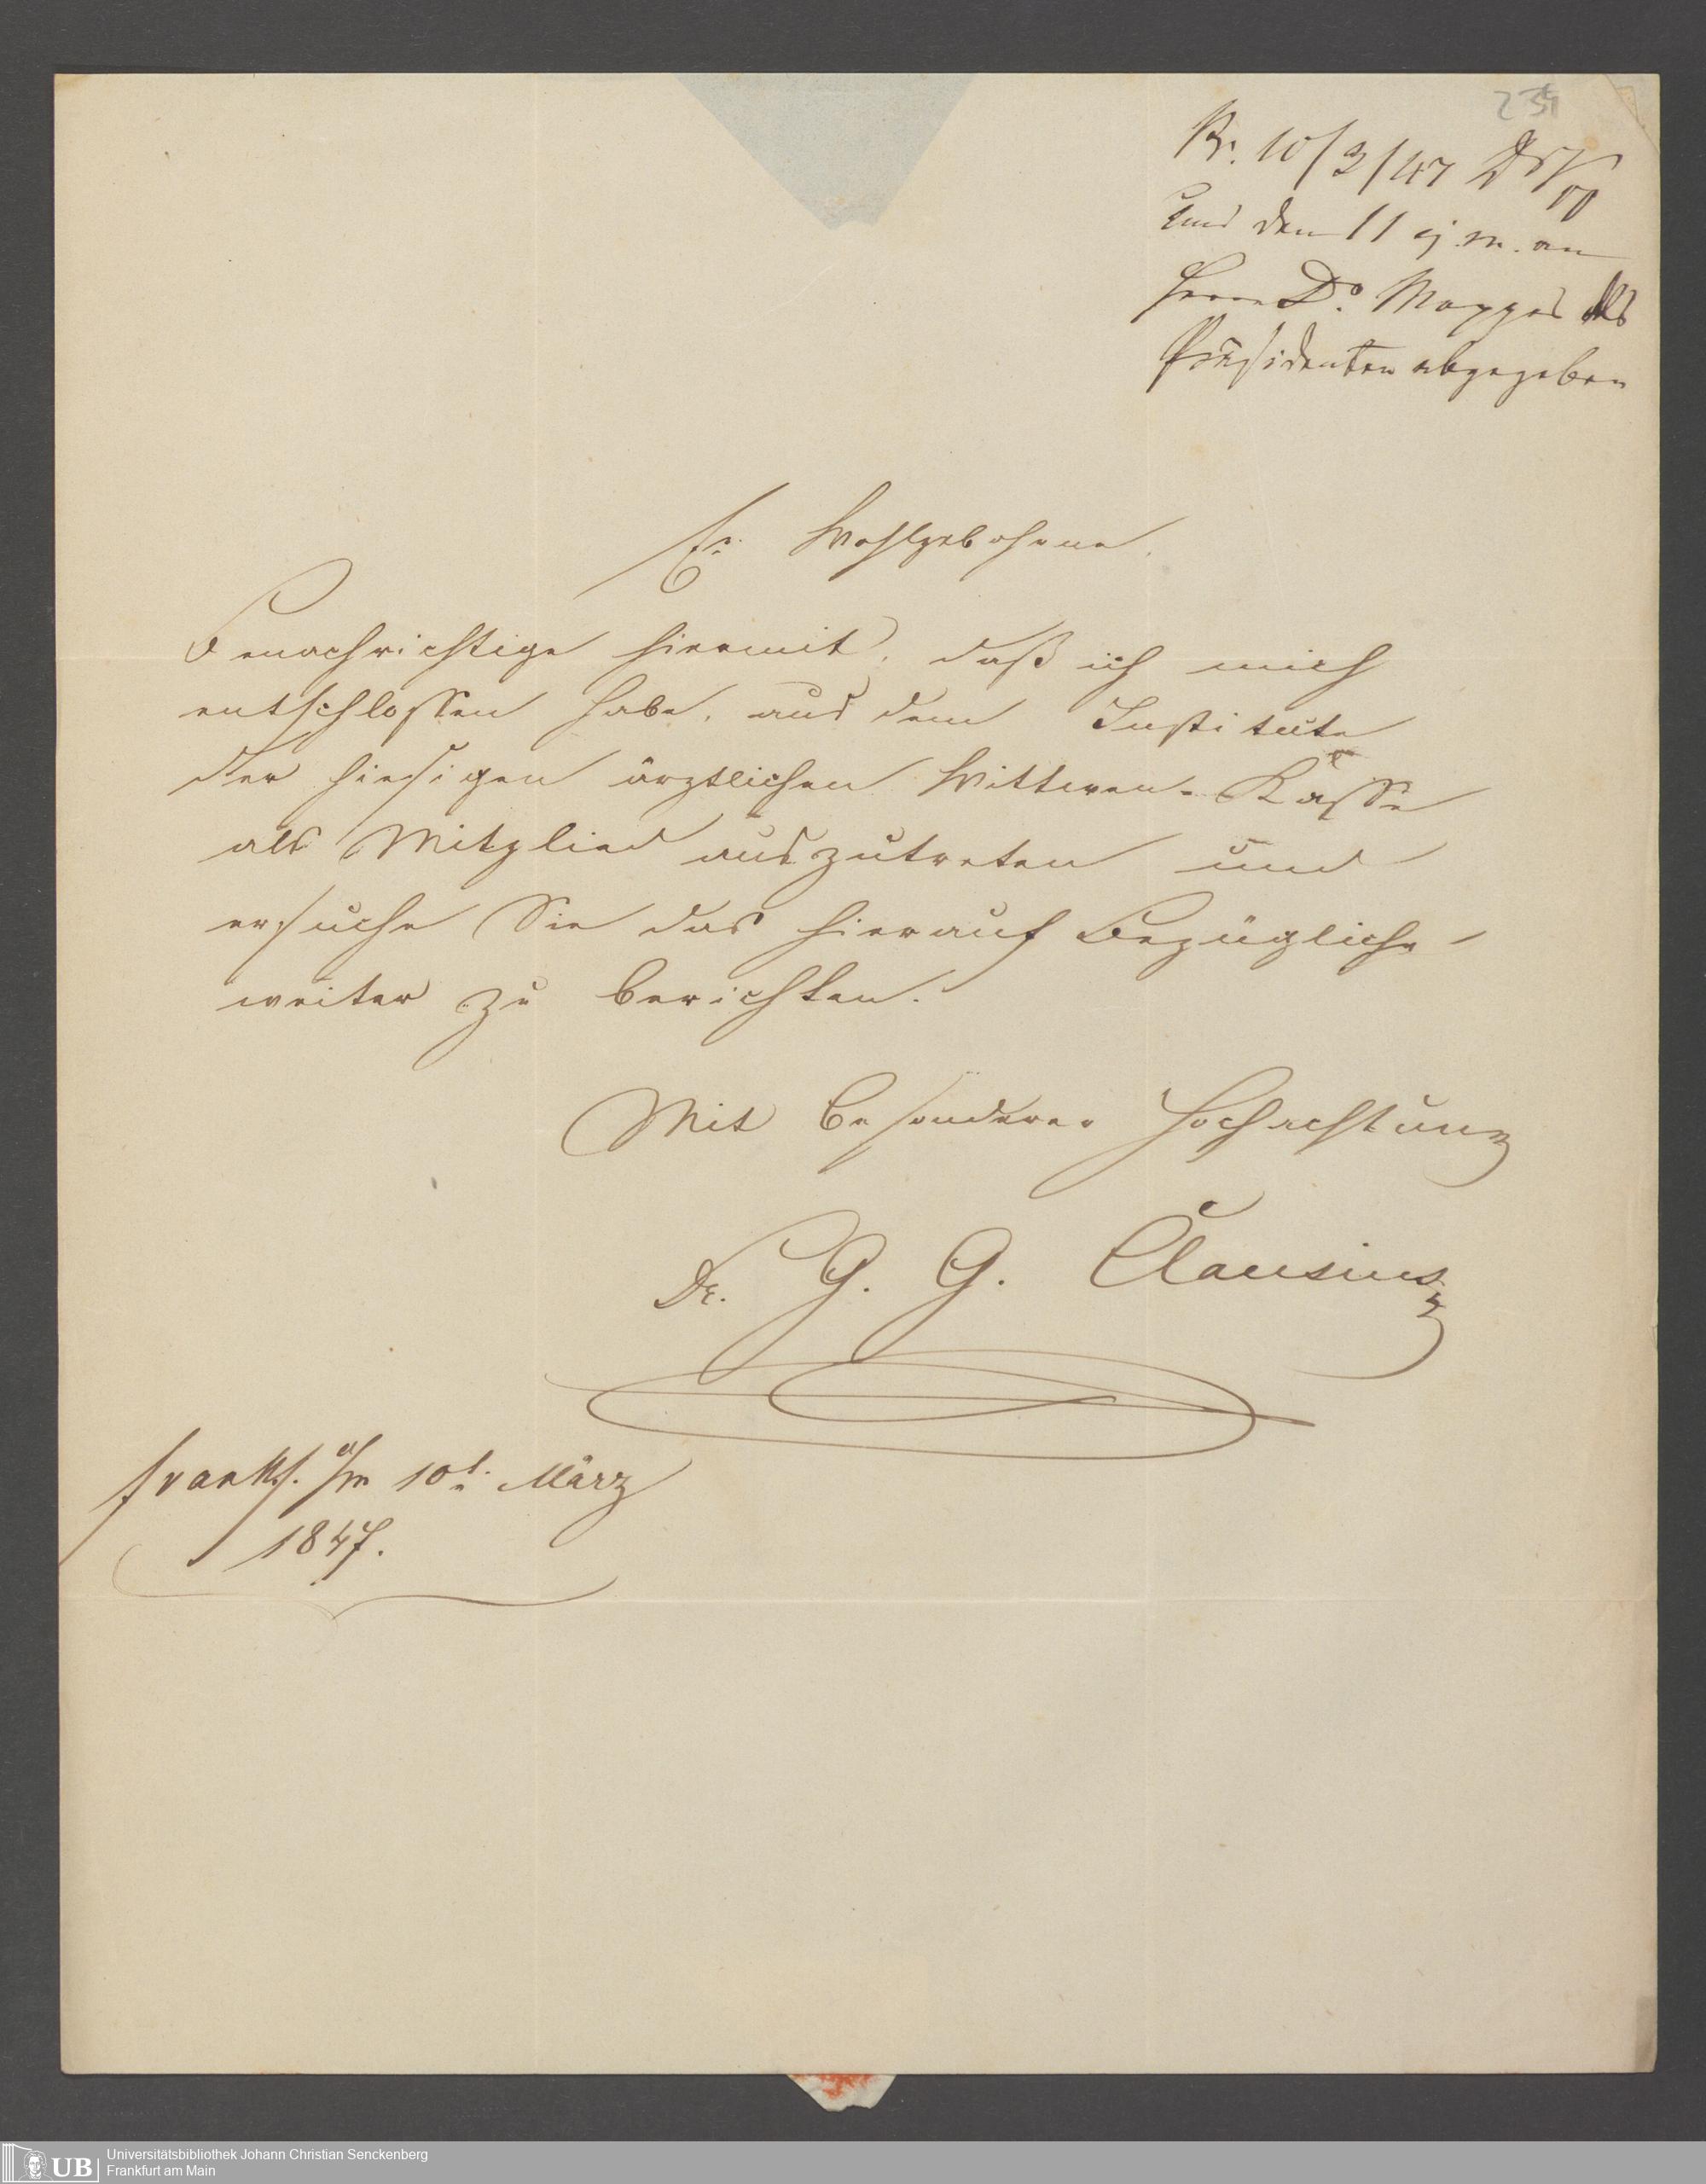 234
Pr. 10/3/47
und den 11 ej. m. an
Herrn Dr. Mappes als
Präsidenten abgegeben
Er. Wohlgebohrne
Benachrichtige hiermit, daß ich mich
entschlossen habe, aus dem Institute
der hiesigen ärztlichen Wittwen-Kasse
als Mitglied auszutreten und
ersuche Sie das hierauf Bezügliche
weiter zu berichten.
Mit besonderer Hochachtung
Dr. G. G. Clausius
Frankf. a/m 10t. März
1847.
UB Universitätsbibliothek Johann Christian Senckenberg
Frankfurt am Main